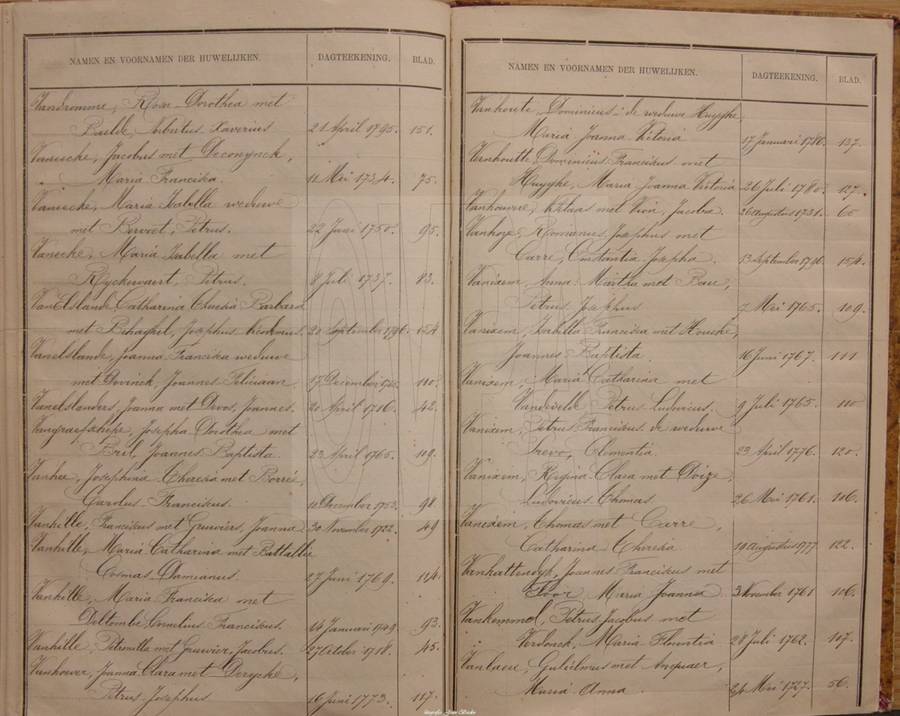 NAMEN EN VOORNAMEN DER HUWELIJKEN. DAGTEEKENING. BLAD.
Vandromme, Rosa Dorothea met
Norbertus Xaverius 21 April 1795. 151.
Jacobus met Deconynck,
Maria Francisca. 11 Mei 1734. 75.
Vaneecke, Maria Isabella weduwe
met Petrus. 22 Juni 1750. 95.
Vaneecke, Maria Isabella met
Ryckewaert, Petrus. 8 Juli 1737. 83.
VanElslande, Catharina Barbara
met Josephus 20 September 1796. 154
Vanelslande, Joanna Francisca weduwe
met Dovinck, Joannes 17 December 110.
Vanelslanders, Joanna met Devos, Joannes. 20 April 1716. 42.
Josepha Dorothea met
Bril, Joannes Baptista 23 April 1765. 109.
Vanhee, Josephina Theresia met Borrée,
Carolus Franciscus. 11 December 1752. 98.
Vanhille, Franciscus met Joanna 30 November 1722. 49
Vanhille, Maria Catharina met Battallie
Cosmas Damianus. 27 Juni 1769. 114.
Vanhille, Maria Francisca met
Deltombe, Cornelius Franciscus. 14 Januari 1749. 93.
Vanhille, Petronilla met Jacobus. 27 October 1718. 45.
Joanna Clara met Derycke,
Petrus Josephus 16 Juni 1773. 117.
NAMEN EN VOORNAMEN DER HUWELIJKEN. DAGTEEKENING. BLAD.
Vanhoute, Dominicus de weduwe Huyghe,
Maria Joanna Vitoria 17 Januari 1780. 127.
Vanhoutte, Dominicus Franciscus met
Huyghe, Maria Joanna Victoria 26 Juli 1780. 127.
Vanhouwere, Niklaas met Jacoba. 26 Augustus 1731. 60
Romanus Josephus met
Carre, Constantia Josepha. 13 September 1796. 154.
Vanixem, Anna Martha met
Petrus Josephus 7 Mei 1765. 109.
Vanixem, Isabella Francisca met
Joannes Baptista. 16 Juni 1767. 111
Vanixem, Maria Catharina met
Vandevelde, Petrus Ludovicus. 9 Juli 1765. 110
Vanixem, Petrus Franciscus de weduwe
Clementia. 23 April 1776. 120.
Vanixem, Regina Clara met
Ludovicus Thomas 26 Mei 1761. 106.
Vanixem, Thomas met Carre,
Catharina Theresia Augustus 1777. 122.
Joannes Franciscus met
Maria Joanna 3 November 1761 106.
Vankemmel, Petrus Jacobus met
Verdonck, Maria Florentia 28 Juli 1762. 107.
Vanlaere, Gulielmus met
Maria Anna 24 Mei 1727. 56.